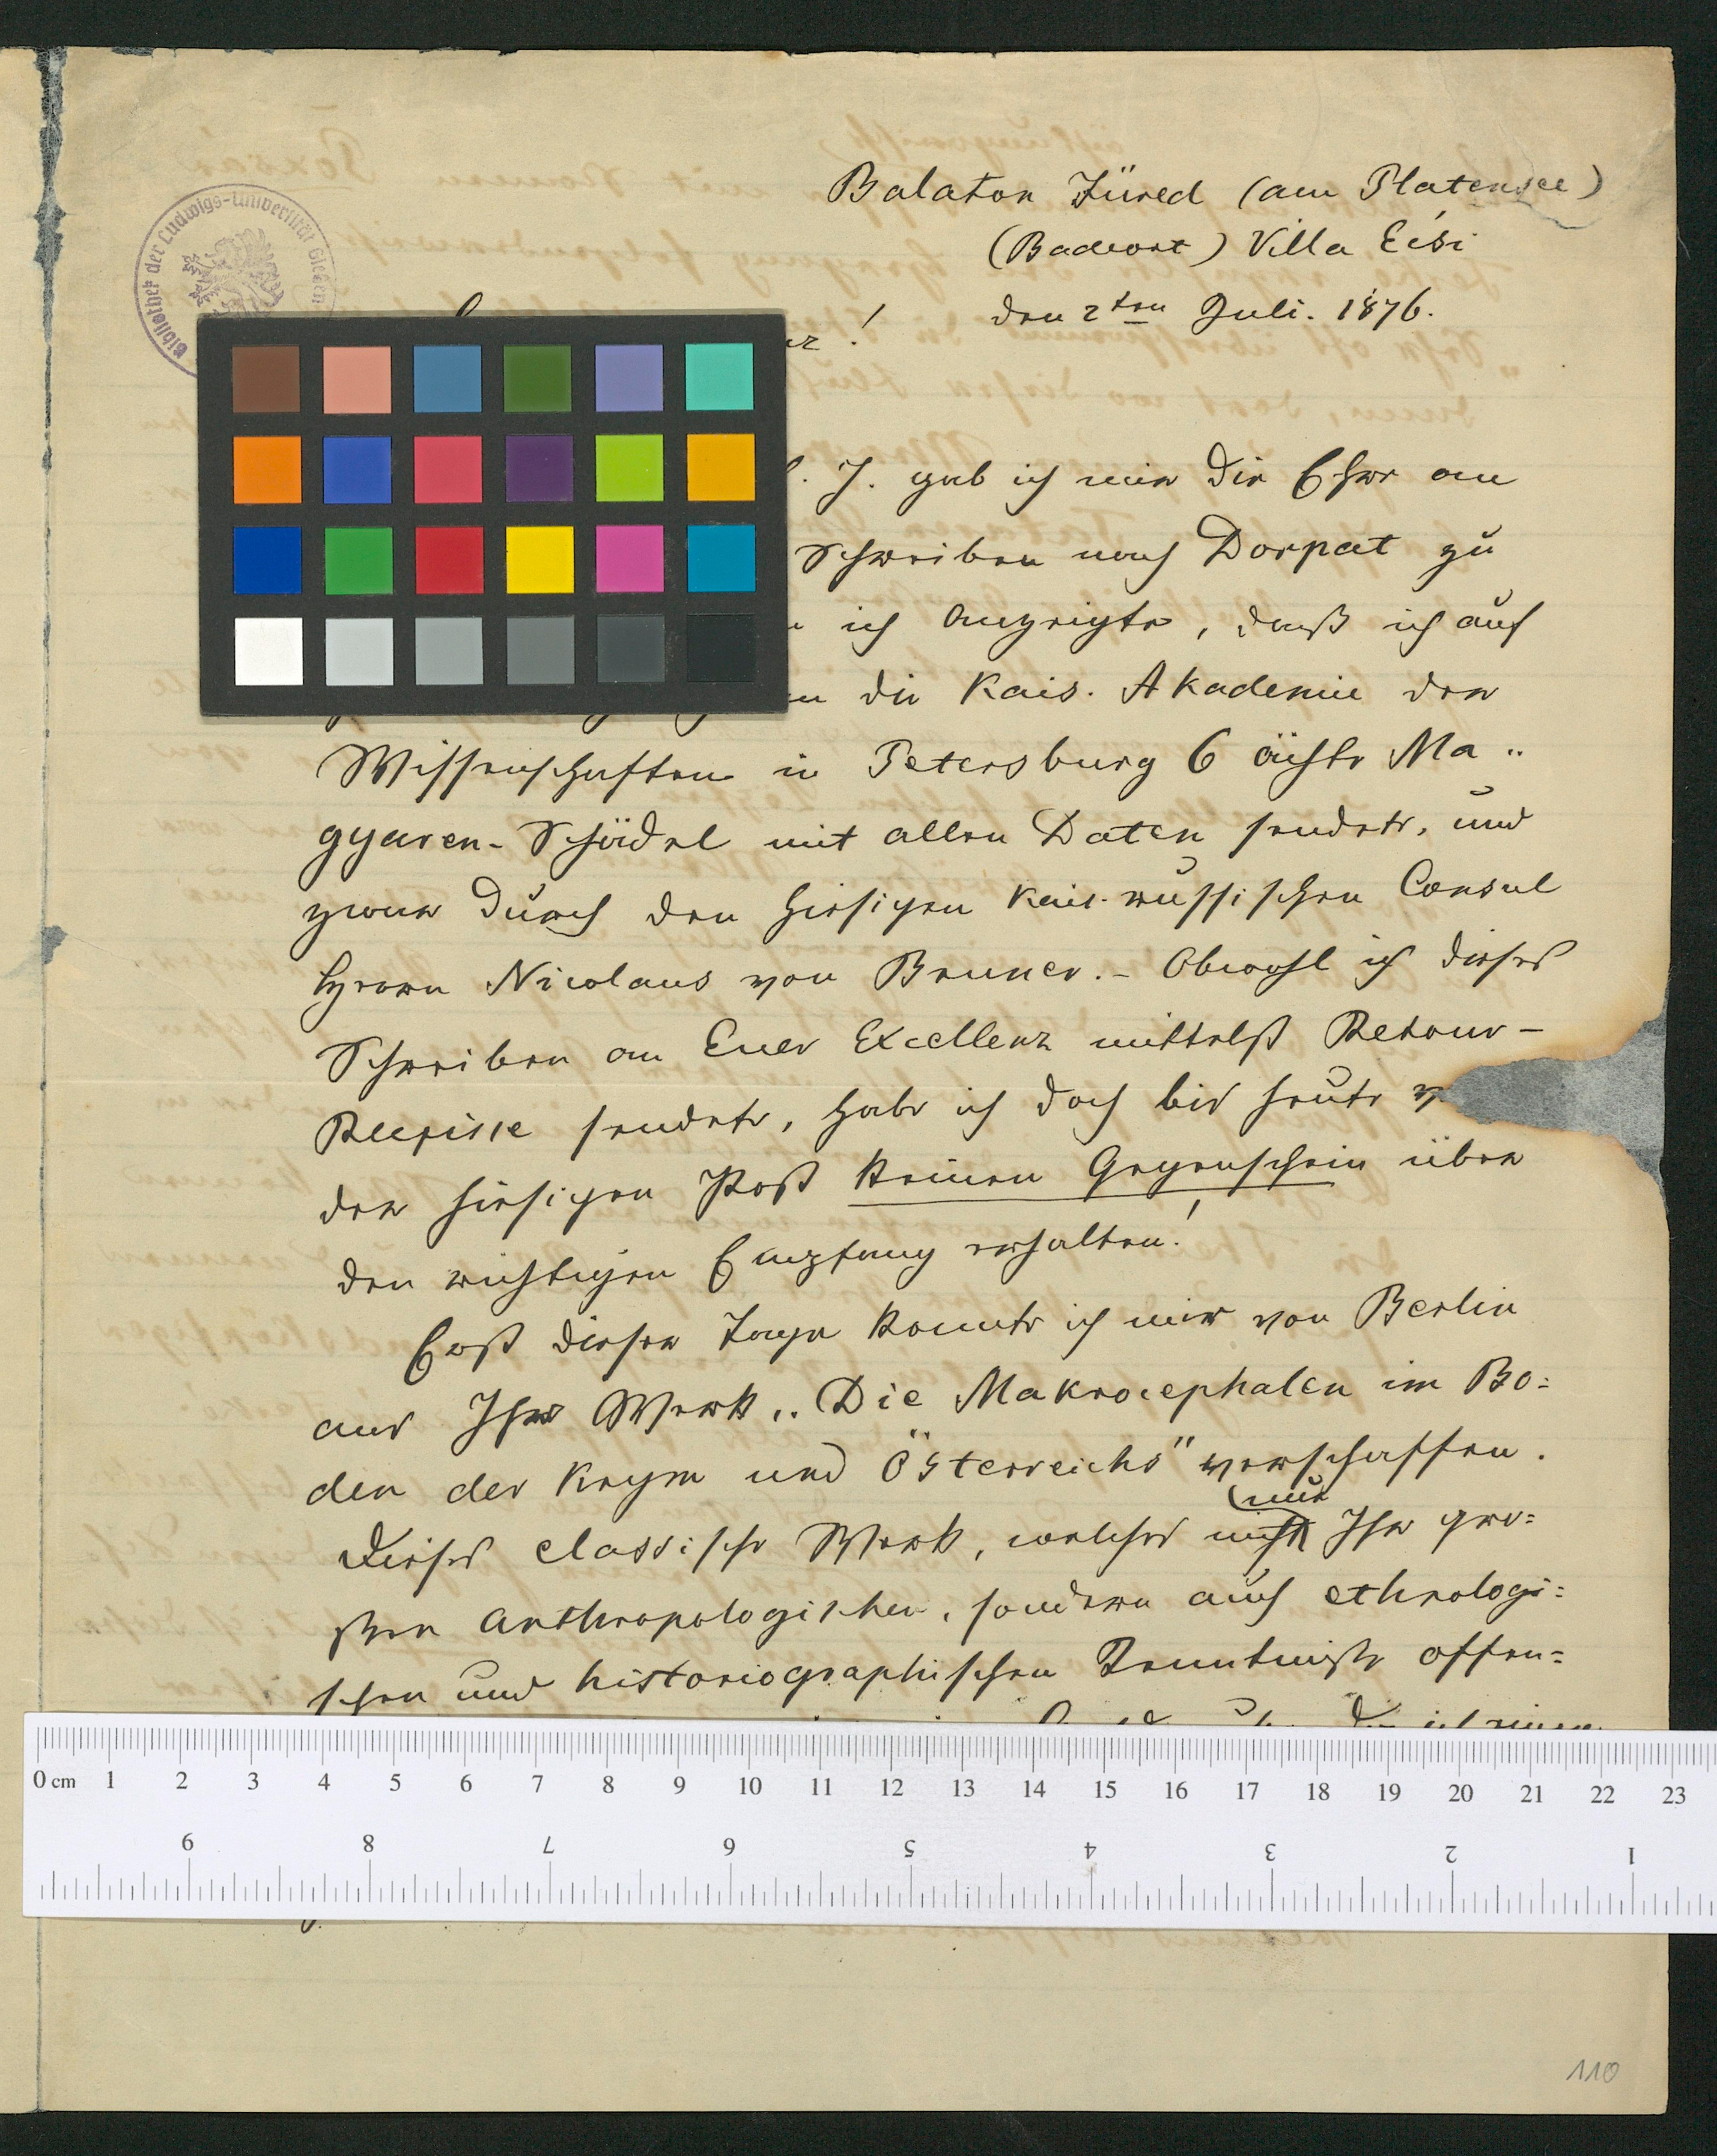 Balaton Füred (am Platensee)
(Badeort) Villa Écsi
den 2ten Juli. 1876.
Bibliothek der Ludwigs-Universität Gießen
!
J. gab ich mir die Ehre an
Schreiben nach Dorpat zu
ich anzeigte, daß ich auf
die Kais. Akademie der
Wissenschaften in Petersburg 6 ächte Ma„
gyaren-Schädel mit allen Daten sendete, und
zwar durch den hiesigen Kais. russischen Consul
Herrn Nicolaus von Bruner. – Obwohl ich dieses
Schreiben an Euer Excellenz mittelst Retour-
Recepisse sendete, habe ich doch bis heute
der hiesigen Post keinen Gegenschein über
den richtigen Empfang erhalten!
Erst dieser Tage konnte ich mir von Berlin
aus Ihr Werk „Die Makrocephalen im Bo=
den der Krym und Österreichs" verschaffen.
Dieses classische Werk, welches nicht nur Ihre gro=
ßen anthropologischen, sondern auch ethnologi=
schen und historiographischen Kenntniße offen=
0 cm 1 2 3 4 5 6 7 8 9 10 11 12 13 14 15 16 17 18 19 20 21 22 23
9 8 7 6 5 4 3 2 1
110